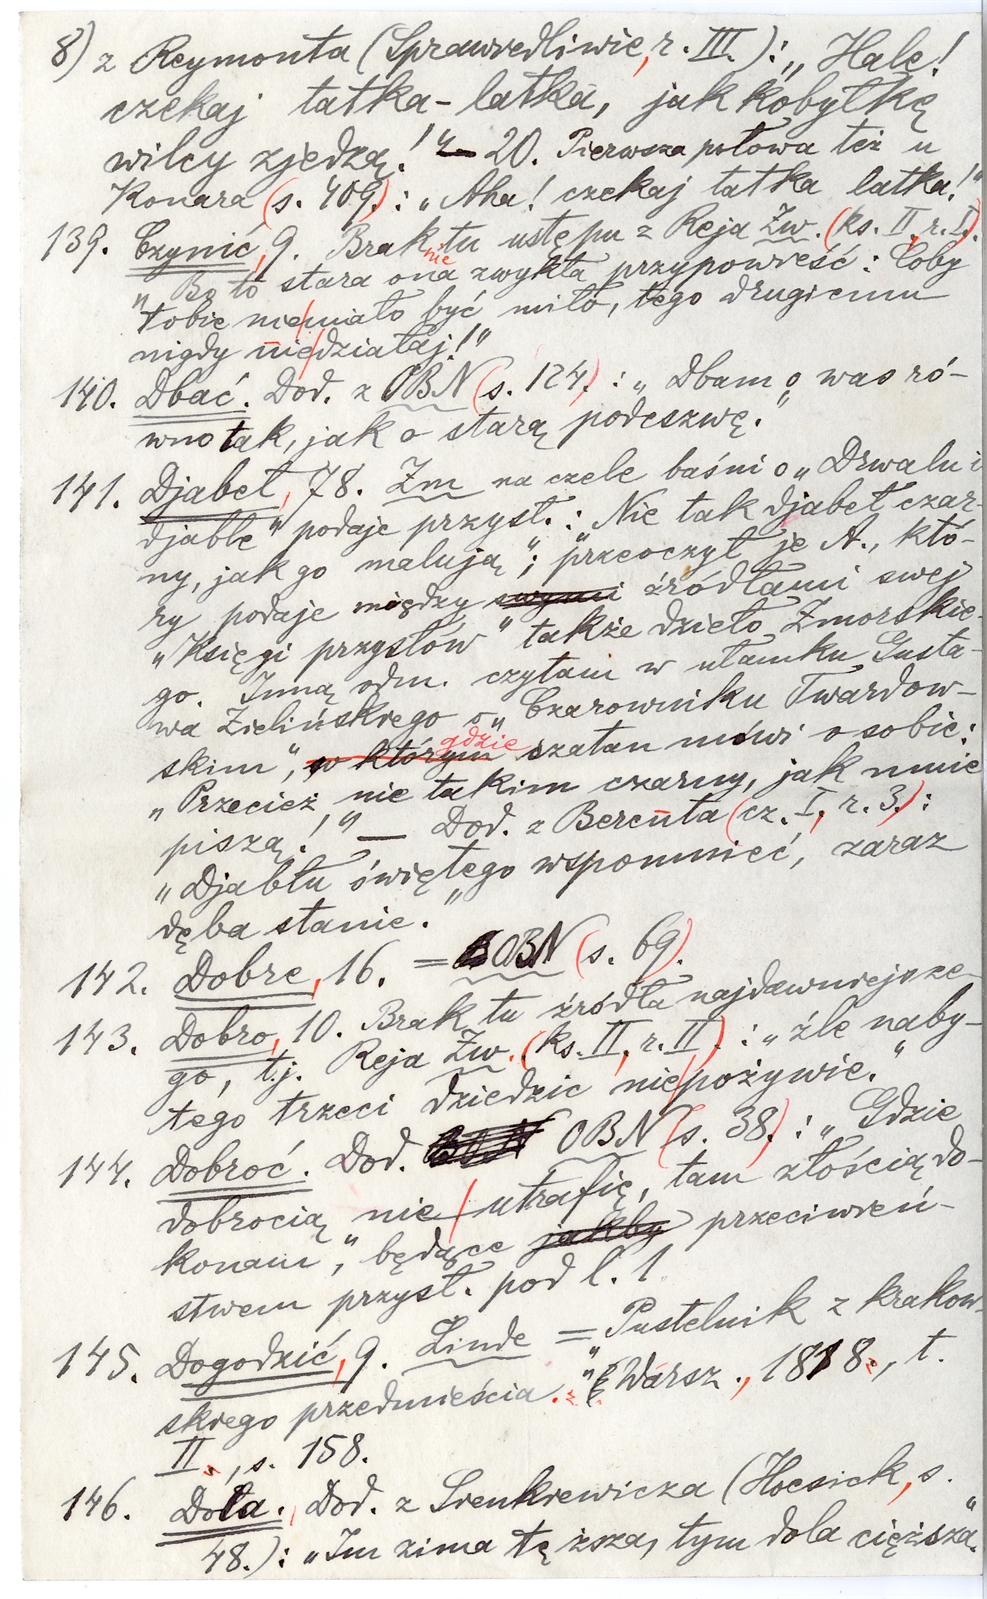 8) z Reymonta (Sprawiedliwie, r. III.): „Hale!
czekaj tatka-latka, jak kobyłkę
wilcy zjedzą!" — 20. Pierwsza połowa też u
Konara (s. 409.): „Aha! czekaj tatka latka!"
139. Czynić, 9. Brak tu ustępu z Reja Zw. (ks. II, r. I).
„Bo to stara ona nie zwykła przypowieść: Coby
tobie niemiało być miło, tego drugiemu
nigdy niedziałaj!"
140. Dbać. Dod. z OBN (s. 124.): „Dbam o was ró-
wno tak, jak o starą podeszwę."
141. Djabeł, 78. Zm na czele baśni o „Drwalu i
djable" podaje przysł.: Nie tak djabeł czar-
ny, jak go malują"; przeoczył je A., któ-
ry podaje między swymi źródłami swej
„Księgi przysłów" także dzieło Zmorskie-
go. Inną odm. czytam w ułamku Gusta-
wa Zielińskiego o „Czarowniku Twardow-
skim", w którym gdzie szatan mówi o sobie:
„Przecież nie takim czarny, jak mnie
piszą!" — Dod. z Berenta (cz. I, r. 3.):
„Djabłu świętego wspomnieć, zaraz
dęba stanie."
142. Dobre, 16. = OBN (s. 69).
143. Dobro, 10. Brak tu źródła najdawniejsze-
go, t.j. Reja Zw. (ks. II, r. II): „źle naby-
tego trzeci dziedzic niepożywie."
144. Dobroć. Dod. OBN (s. 38.): „Gdzie
dobrocią nie utrafię, tam złością do-
konam", będące jakby przeciwień-
stwem przysł. pod l. 1
145. Dogodzić, 9. Linde = Pustelnik z krakow-
skiego przedmieścia." Warsz., 1818., t.
II., s. 158.
146. Dola. Dod. z Sienkiewicza (Hoesick, s.
48.): „Im zima tęższa, tym dola cięższa."